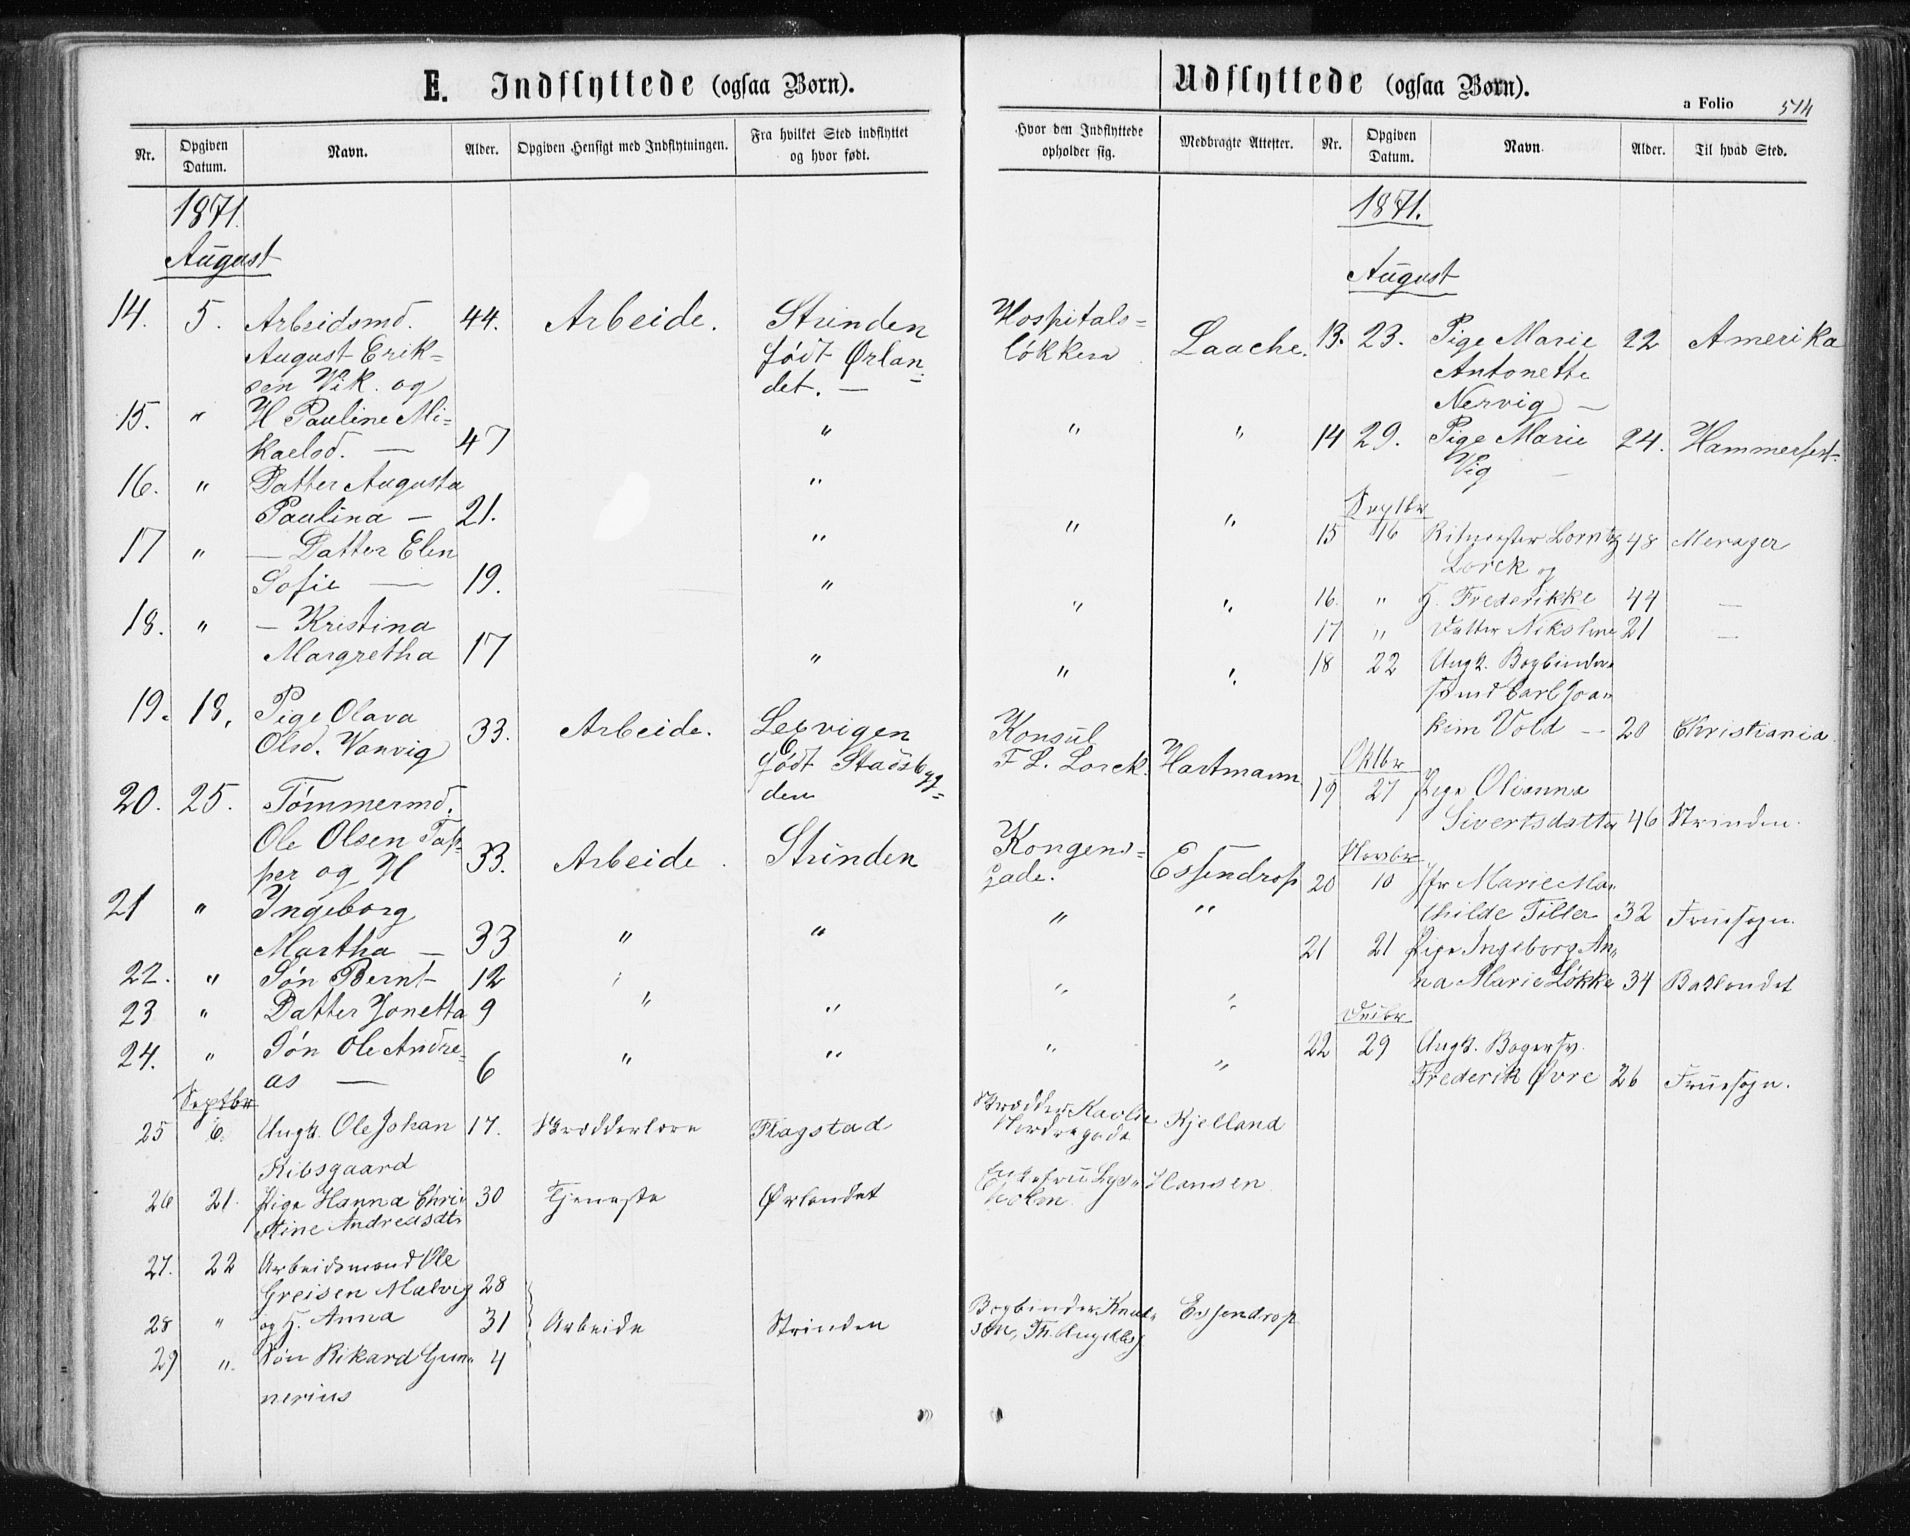 E. Indflyttede (ogsaa Børn).
Nr. Opgiven Datum. Navn. Alder. Opgiven Hensigt med Indflytningen. Fra hvilket Sted indflyttet og hvor født.
1871.
August
14. 5. Arbeidsmd. 44. Arbeide. Strinden
August Erik= født Ørlan=
sen Vik. og det. —
15. " H Pauline Mi=
kaelsd. — 47 "
16. " Datter Augusta "
Paulina — 21.
17 " — Datter Elen "
Sofie — 19. "
18. " — Kristina
Margretha 17 "
19. 18. Pige Olava 33. Arbeide. Lexvigen
Olsd. Vanvig født Stadsbyg=
den
20. 25. Tømmermd.
Ole Olsen Tap=
per og H 33. Arbeide. Strinden
21 " Ingeborg
Martha — 33 " "
22. " Søn Bernt 12 "
23 " Datter Jonetta 9 " "
24. " Søn Ole Andre= " "
as — 6
Septbr
25 6. Ungk. Ole Johan 17. Skrædderlære Flagstad
Ribsgaard
26 21. Pige Hanna Chri 30 Tjeneste Ørlandet
stine Andreasdtr
27. 22 Arbeidsmand Ole
Greisen Malvig 28
28 " og H. Anna 31 Arbeide Strinden
29 " Søn Rikard Gun= 4
nerius
Udflyttede (ogsaa Børn).
a Folio 514
Hvor den Indflyttede opholder sig. Medbragte Attester. Nr. Opgiven Datum. Navn. Alder. Til hvad Sted.
1871.
August
Hospitals=
løkken Laache. 13. 23. Pige Marie 22 Amerika
Antonette
Nervig —
" " 14 29. Pige Marie 24. Hammerfest.
Vig —
Septbr
" " 15 16 Ritmester Lorntz 48 Meraker
Lorck og
" " 16. " H. Frederikke 44 —
17 " Datter Nikoline 21 —
" " 18 22 Ungk. Bogbinder=
svend Carl Joa=
Konsul kim Vold — 20 Christiania.
F L. Lorck. Hartmann Oktbr
19 27 Pige Olianna
Sivertsdatter 46 Strinden.
Kongens= Novbr
gade. Essendrop 20 10 Jfr Marie Ma=
" " thilde Tiller 32 Fruesogn.
21 21 Pige Ingeborg An=
" " na Marie Løkke 34 Baklandet
Decbr
" " 22 29 Ungk. Bagersv.
Frederik Øvre 26 Fruesogn.
Skrædder Kavlie Kjelland
Nordregade
Enkefru Lys= Hansen
holm
Bogbinder Knud= Essendrop
sen,